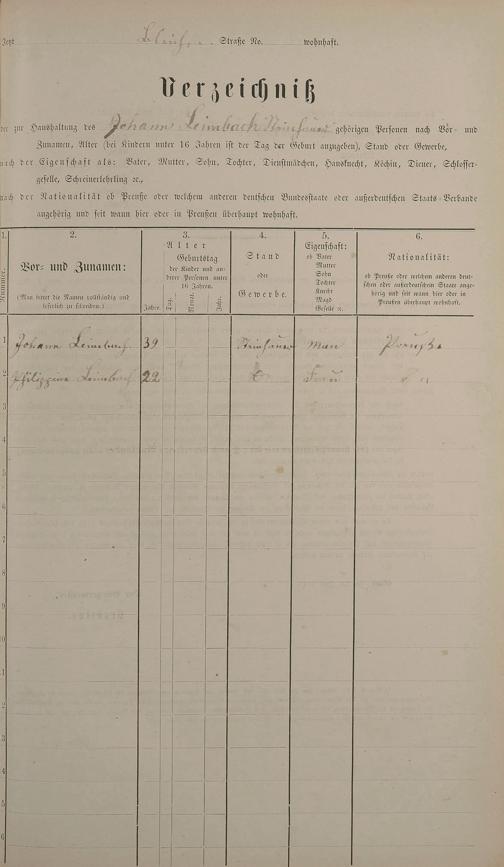 Jetzt Straße No. wohnhaft.
Verzeichniß
der zur Haushaltung des Johann Leimbach Steinhauer gehörigen Personen nach Vor- und
Zunamen, Alter (bei Kindern unter 16 Jahren ist der Tag der Geburt anzugeben), Stand oder Gewerbe,
nach der Eigenschaft als: Vater, Mutter, Sohn, Tochter, Dienstmädchen, Hausknecht, Köchin, Diener, Schlosser-
geselle, Schreinerlehrling ꝛc.,
nach der Nationalität ob Preuße oder welchem anderen deutschen Bundesstaate oder außerdeutschen Staats-Verbande
angehörig und seit wann hier oder in Preußen überhaupt wohnhaft.
1. 2. 3. 4. 5. 6.
Nummer.
Vor- und Zunamen:
(Man bittet die Namen vollständig und
leserlich zu schreiben.)
Alter
Geburtstag
der Kinder und an-
derer Personen unter
16 Jahren.
Jahre. Tag. Monat. Jahr.
Stand
oder
Gewerbe.
Eigenschaft:
ob Vater
Mutter
Sohn
Tochter
Knecht
Magd
Geselle ꝛc.
Nationalität:
ob Preuße oder welchem anderen deut-
schen oder außerdeutschen Staate ange-
hörig und seit wann hier oder in
Preußen überhaupt wohnhaft.
1 Johann Leimbach 39 Steinhauer man Preuße
2 Philippine Leimbach 22 Frau
3
4
5
6
7
8
9
0
1
2
3
4
5
6